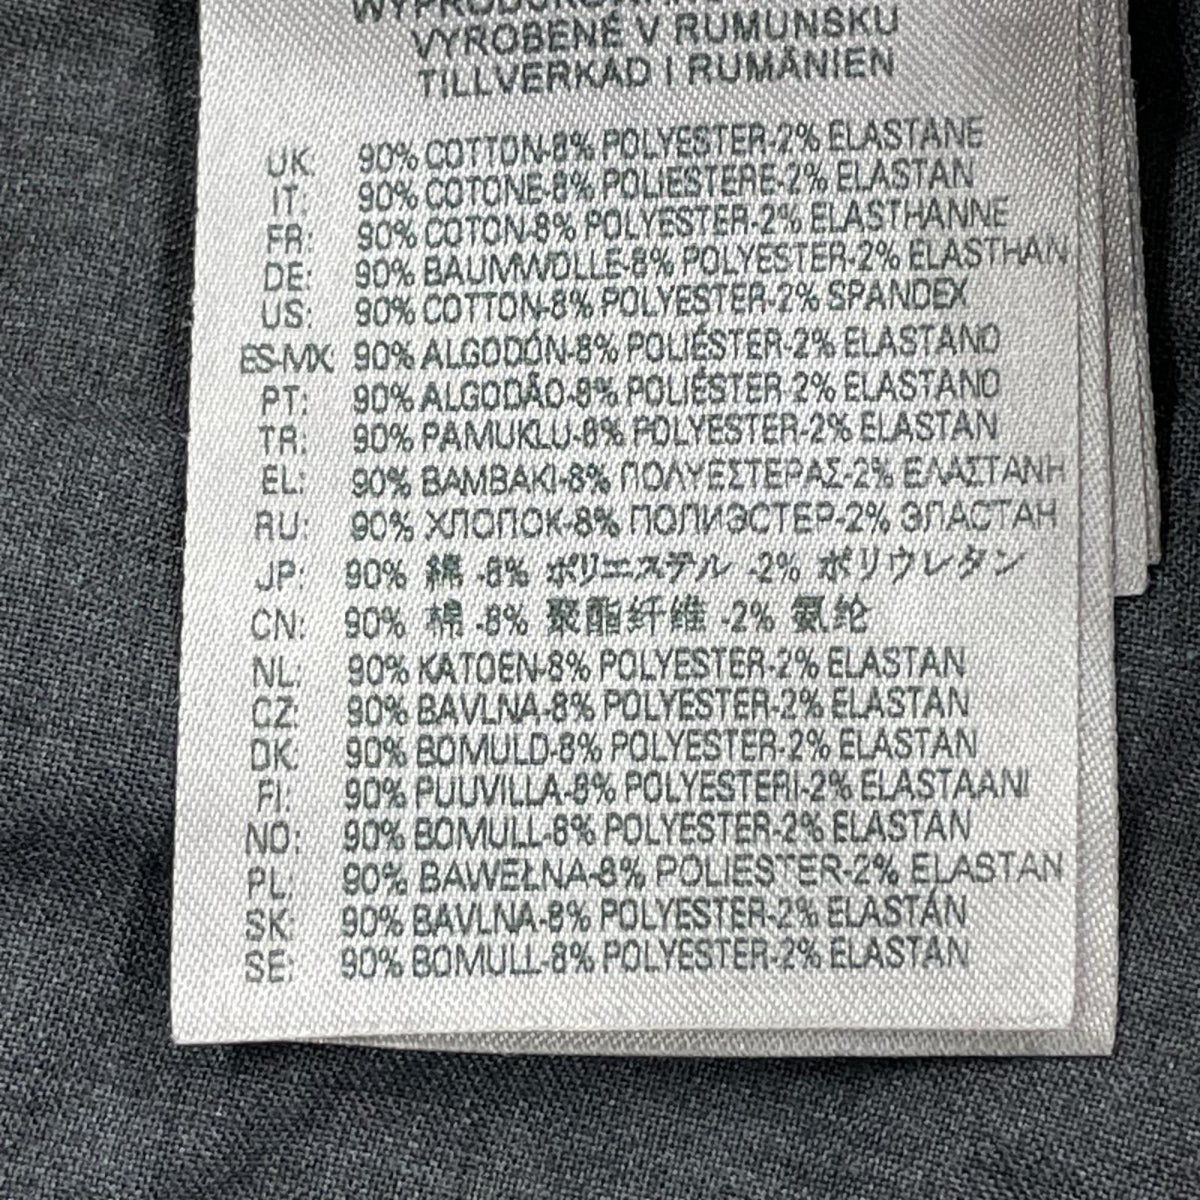 VYROBENÉ V RUMUNSKU
TILLVERKAD I RUMÄNIEN
UK: 90% COTTON-8% POLYESTER-2% ELASTANE
IT: 90% COTONE-8% POLIESTERE-2% ELASTAN
FR: 90% COTON-8% POLYESTER-2% ELASTHANNE
DE: 90% BAUMWOLLE-8% POLYESTER-2% ELASTHAN
US: 90% COTTON-8% POLYESTER-2% SPANDEX
ES-MX 90% ALGODÓN-8% POLIÉSTER-2% ELASTANO
PT: 90% ALGODÃO-8% POLIÉSTER-2% ELASTANO
TR: 90% PAMUKLU-8% POLYESTER-2% ELASTAN
EL: 90% BAMBAKI-8% ΠΟΛΥΕΣΤΕΡΑΣ-2% ΕΛΑΣΤΑΝΗ
RU: 90% ХЛОПОК-8% ПОЛИЭСТЕР-2% ЭЛАСТАН
JP: 90% 綿 -8% ポリエステル -2% ポリウレタン
CN: 90% 棉 -8% 聚酯纤维 -2% 氨纶
NL: 90% KATOEN-8% POLYESTER-2% ELASTAN
CZ: 90% BAVLNA-8% POLYESTER-2% ELASTAN
DK: 90% BOMULD-8% POLYESTER-2% ELASTAN
FI: 90% PUUVILLA-8% POLYESTERI-2% ELASTAANI
NO: 90% BOMULL-8% POLYESTER-2% ELASTAN
PL: 90% BAWEŁNA-8% POLIESTER-2% ELASTAN
SK: 90% BAVLNA-8% POLYESTER-2% ELASTÁN
SE: 90% BOMULL-8% POLYESTER-2% ELASTAN